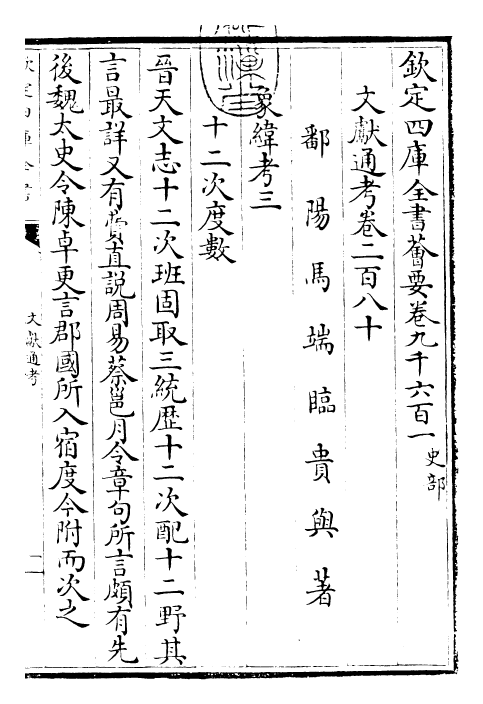 欽定四庫全書薈要卷九千六百一 史部
文獻通考卷二百八十
鄱陽馬端臨貴與著
象緯考三
十二次度數
晉天文志十二次班固取三統歷十二次配十二野其
言最詳又有費直説周易蔡邕月令章句所言頗有先
後魏太史令陳卓更言郡國所入宿度今附而次之
文獻通考